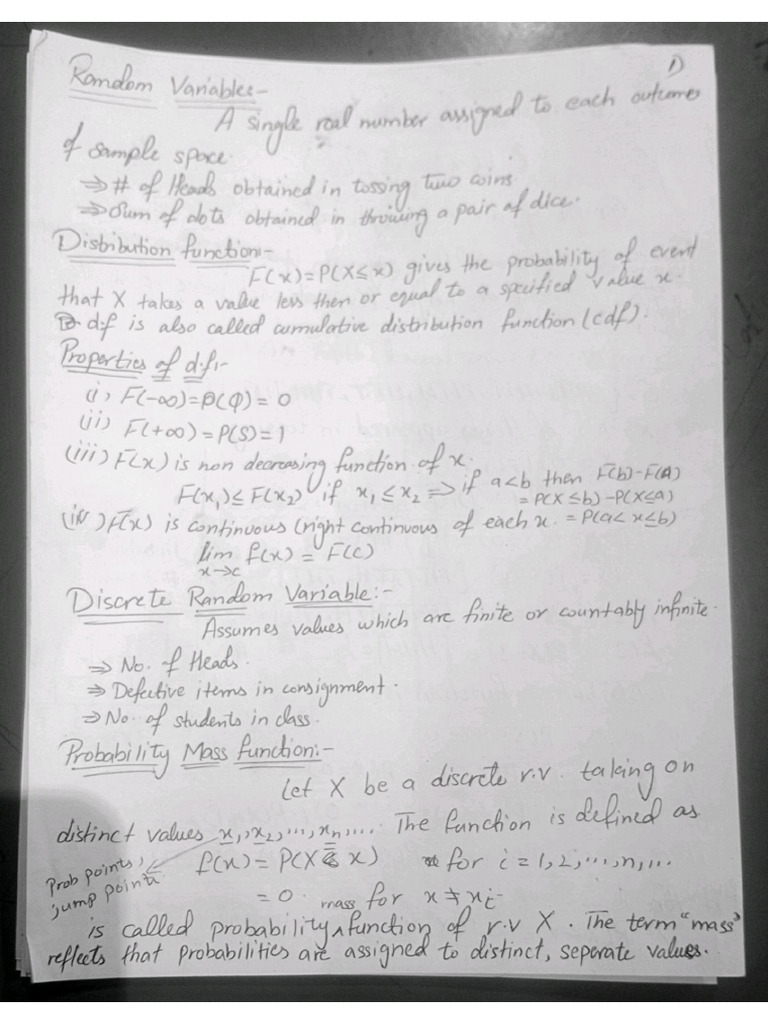 1)
Random Variables:-
A single real number assigned to each outcome
of sample space.
⇒ # of Heads obtained in tossing two coins
⇒ Sum of dots obtained in throwing a pair of dice.
Distribution function:-
F(x)=P(X≤x) gives the probability of event
that X takes a value less then or equal to a specified value x.
d.f is also called cumulative distribution function (cdf).
Properties of d.f:-
(i) F(-∞)=P(φ)=0
(ii) F(+∞)=P(S)=1
(iii) F(x) is non decreasing function of x.
F(x₁)≤F(x₂) if x₁≤x₂ ⇒ if a<b then F(b)-F(A)
=P(X≤b)-P(X≤a)
(iv) F(x) is continuous (right continuous of each x. =P(a<x≤b)
lim f(x) = F(c)
x→c
Discrete Random Variable:-
Assumes values which are finite or countably infinite.
⇒ No. of Heads.
⇒ Defective items in consignment.
⇒ No. of students in class.
Probability Mass function:-
Let X be a discrete r.v. taking on
distinct values x₁,x₂,...,xₙ,.... The function is defined as
Prob points,
jump points
f(x) = P(X = x) for i=1,2,...,n,...
= 0 for x ≠ xᵢ
is called probability mass function of r.v X. The term "mass"
reflects that probabilities are assigned to distinct, seperate values.